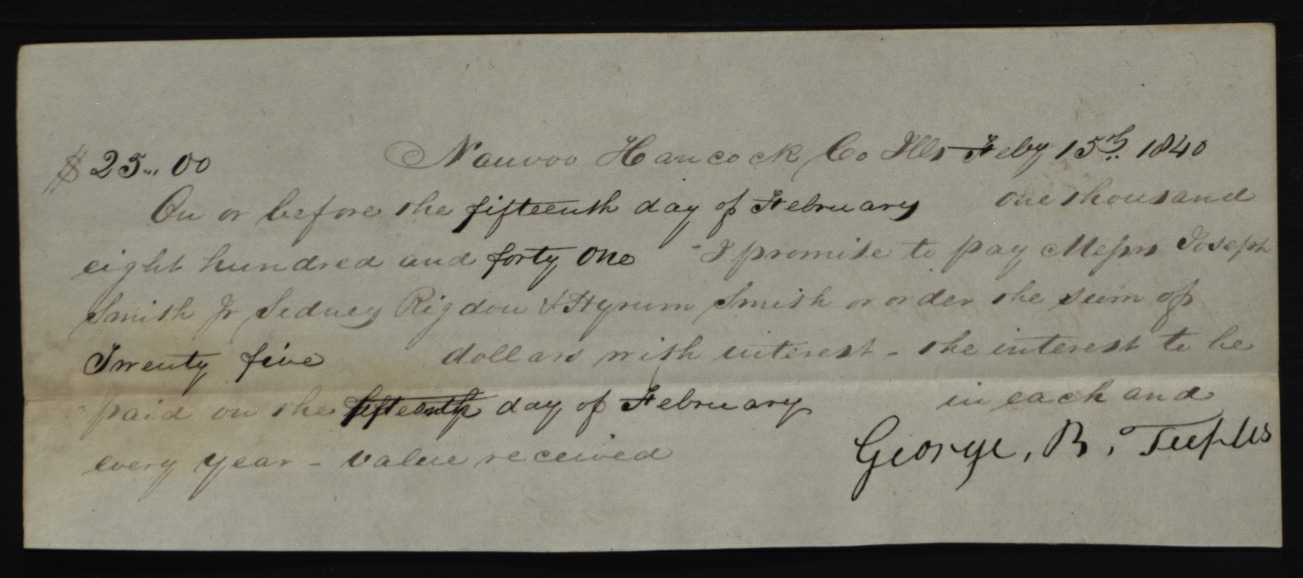 $25.. 00 Nauvoo Hancock Co Ills Feby 15th. 1840
On or before the fifteenth day of February one thousand
eight hundred and forty one I promise to pay Messrs Joseph
Smith Jr Sedney Rigdon & Hyrum Smith or order the sum of
Twenty five dollars with interest - the interest to be
paid on the fifteenth day of February in each and
every year - value received
George. B. Teeples